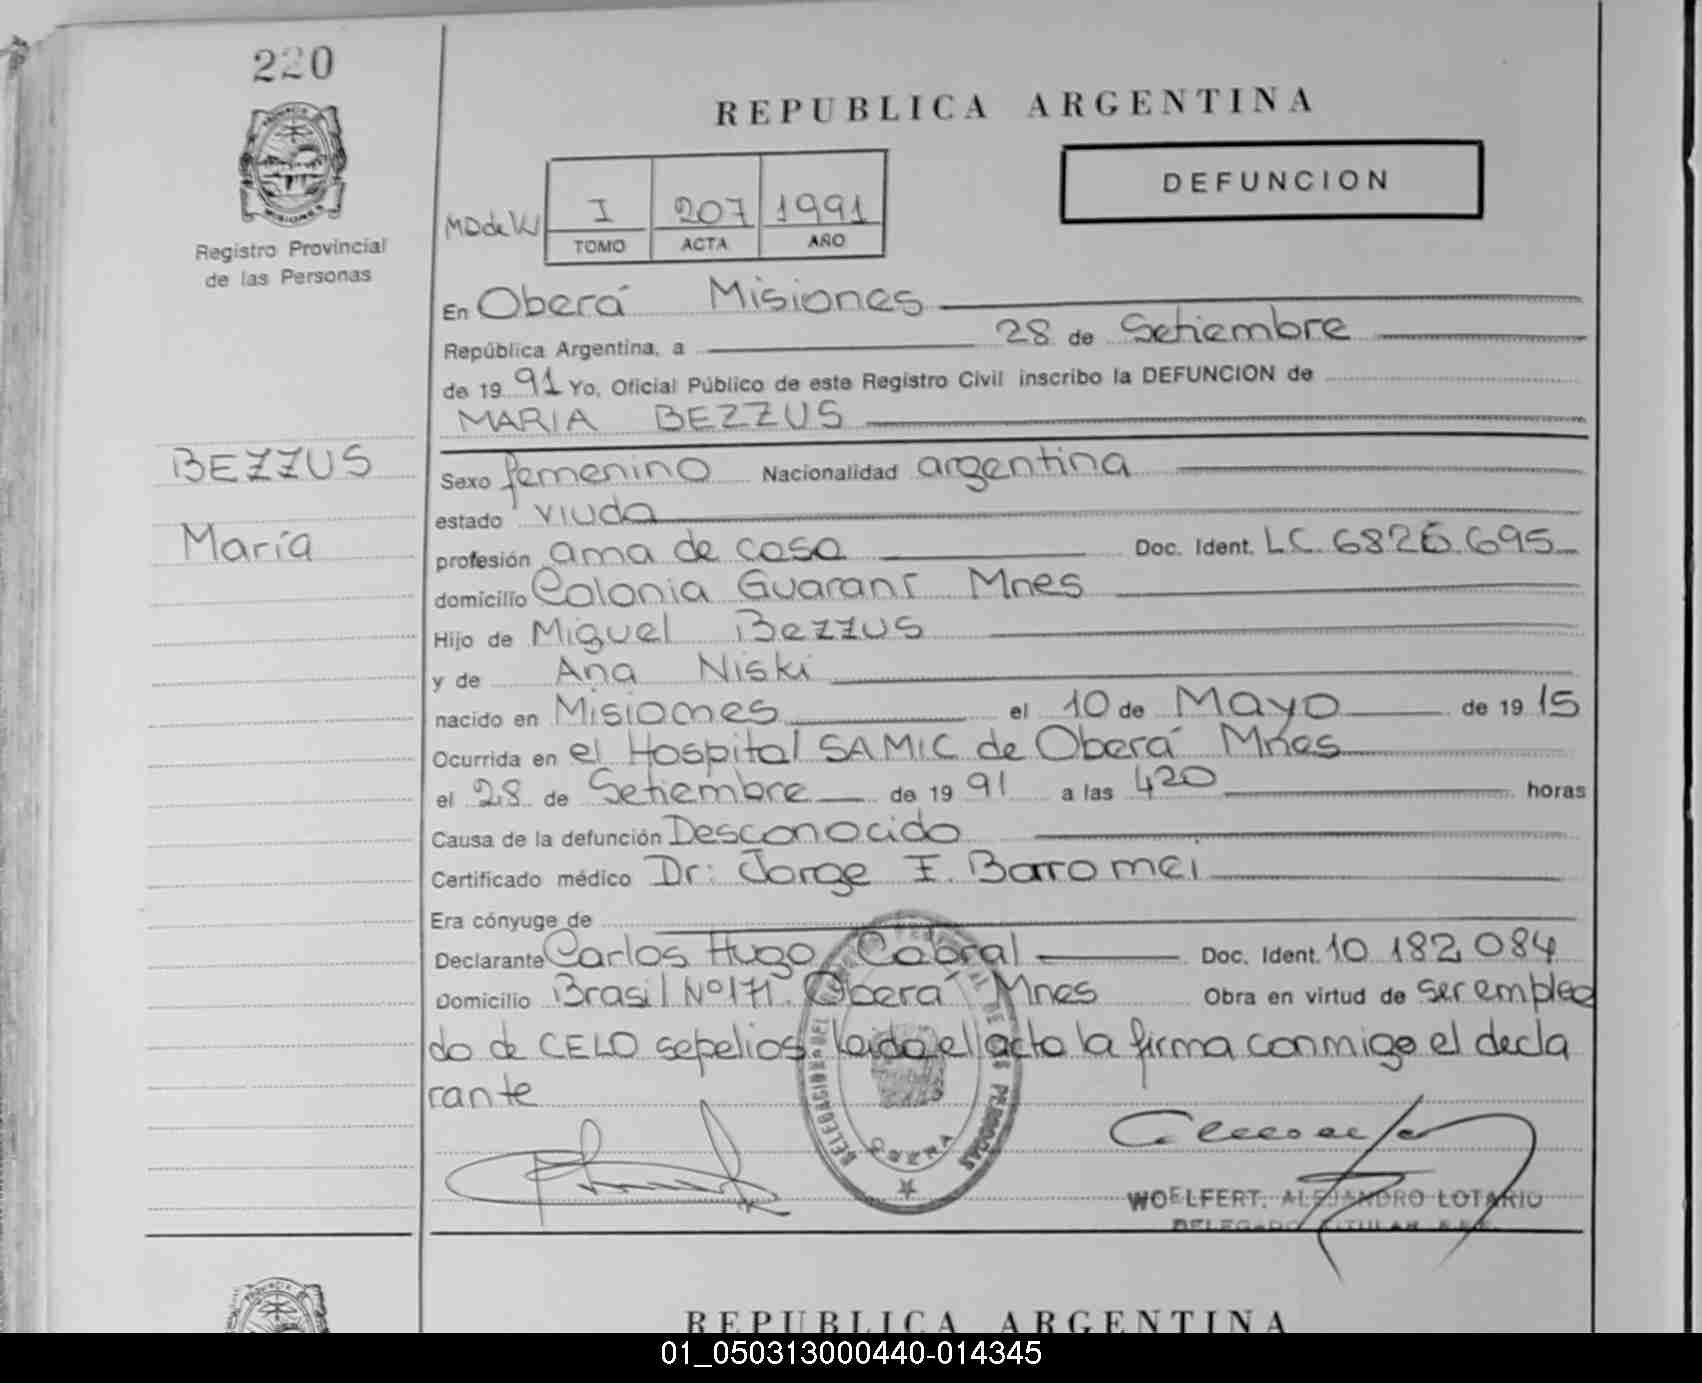 220
PROVINCIA
MISIONES
Registro Provincial
de las Personas
REPUBLICA ARGENTINA
DEFUNCION
MDdeW I 207 1991
TOMO ACTA AÑO
En Oberá Misiones
República Argentina, a 28 de Setiembre
de 19 91 Yo, Oficial Público de este Registro Civil inscribo la DEFUNCION de
MARIA BEZZUS
BEZZUS
María
Sexo femenino Nacionalidad argentina
estado viuda
profesión ama de casa Doc. Ident. LC. 6826.695
domicilio Colonia Guaraní Mnes
Hijo de Miguel Bezzus
y de Ana Niski
nacido en Misiones el 10 de Mayo de 19 15
Ocurrida en el Hospital SAMIC de Oberá Mnes
el 28 de Setiembre de 19 91 a las 420 horas
Causa de la defunción Desconocido
Certificado médico Dr: Jorge I. Barromei
Era cónyuge de
Declarante Carlos Hugo Cabral Doc. Ident. 10 182,084
Domicilio Brasil Nº171 Oberá Mnes Obra en virtud de ser emplea
do de CELO sepelios. leida el acta la firma conmigo el decla
rante
DELEGACION DEL DE LAS PERSONAS
OBERA
WOELFERT, ALEJANDRO LOTARIO
DELEGADO TITULAR
REPUBLICA ARGENTINA
01_050313000440-014345